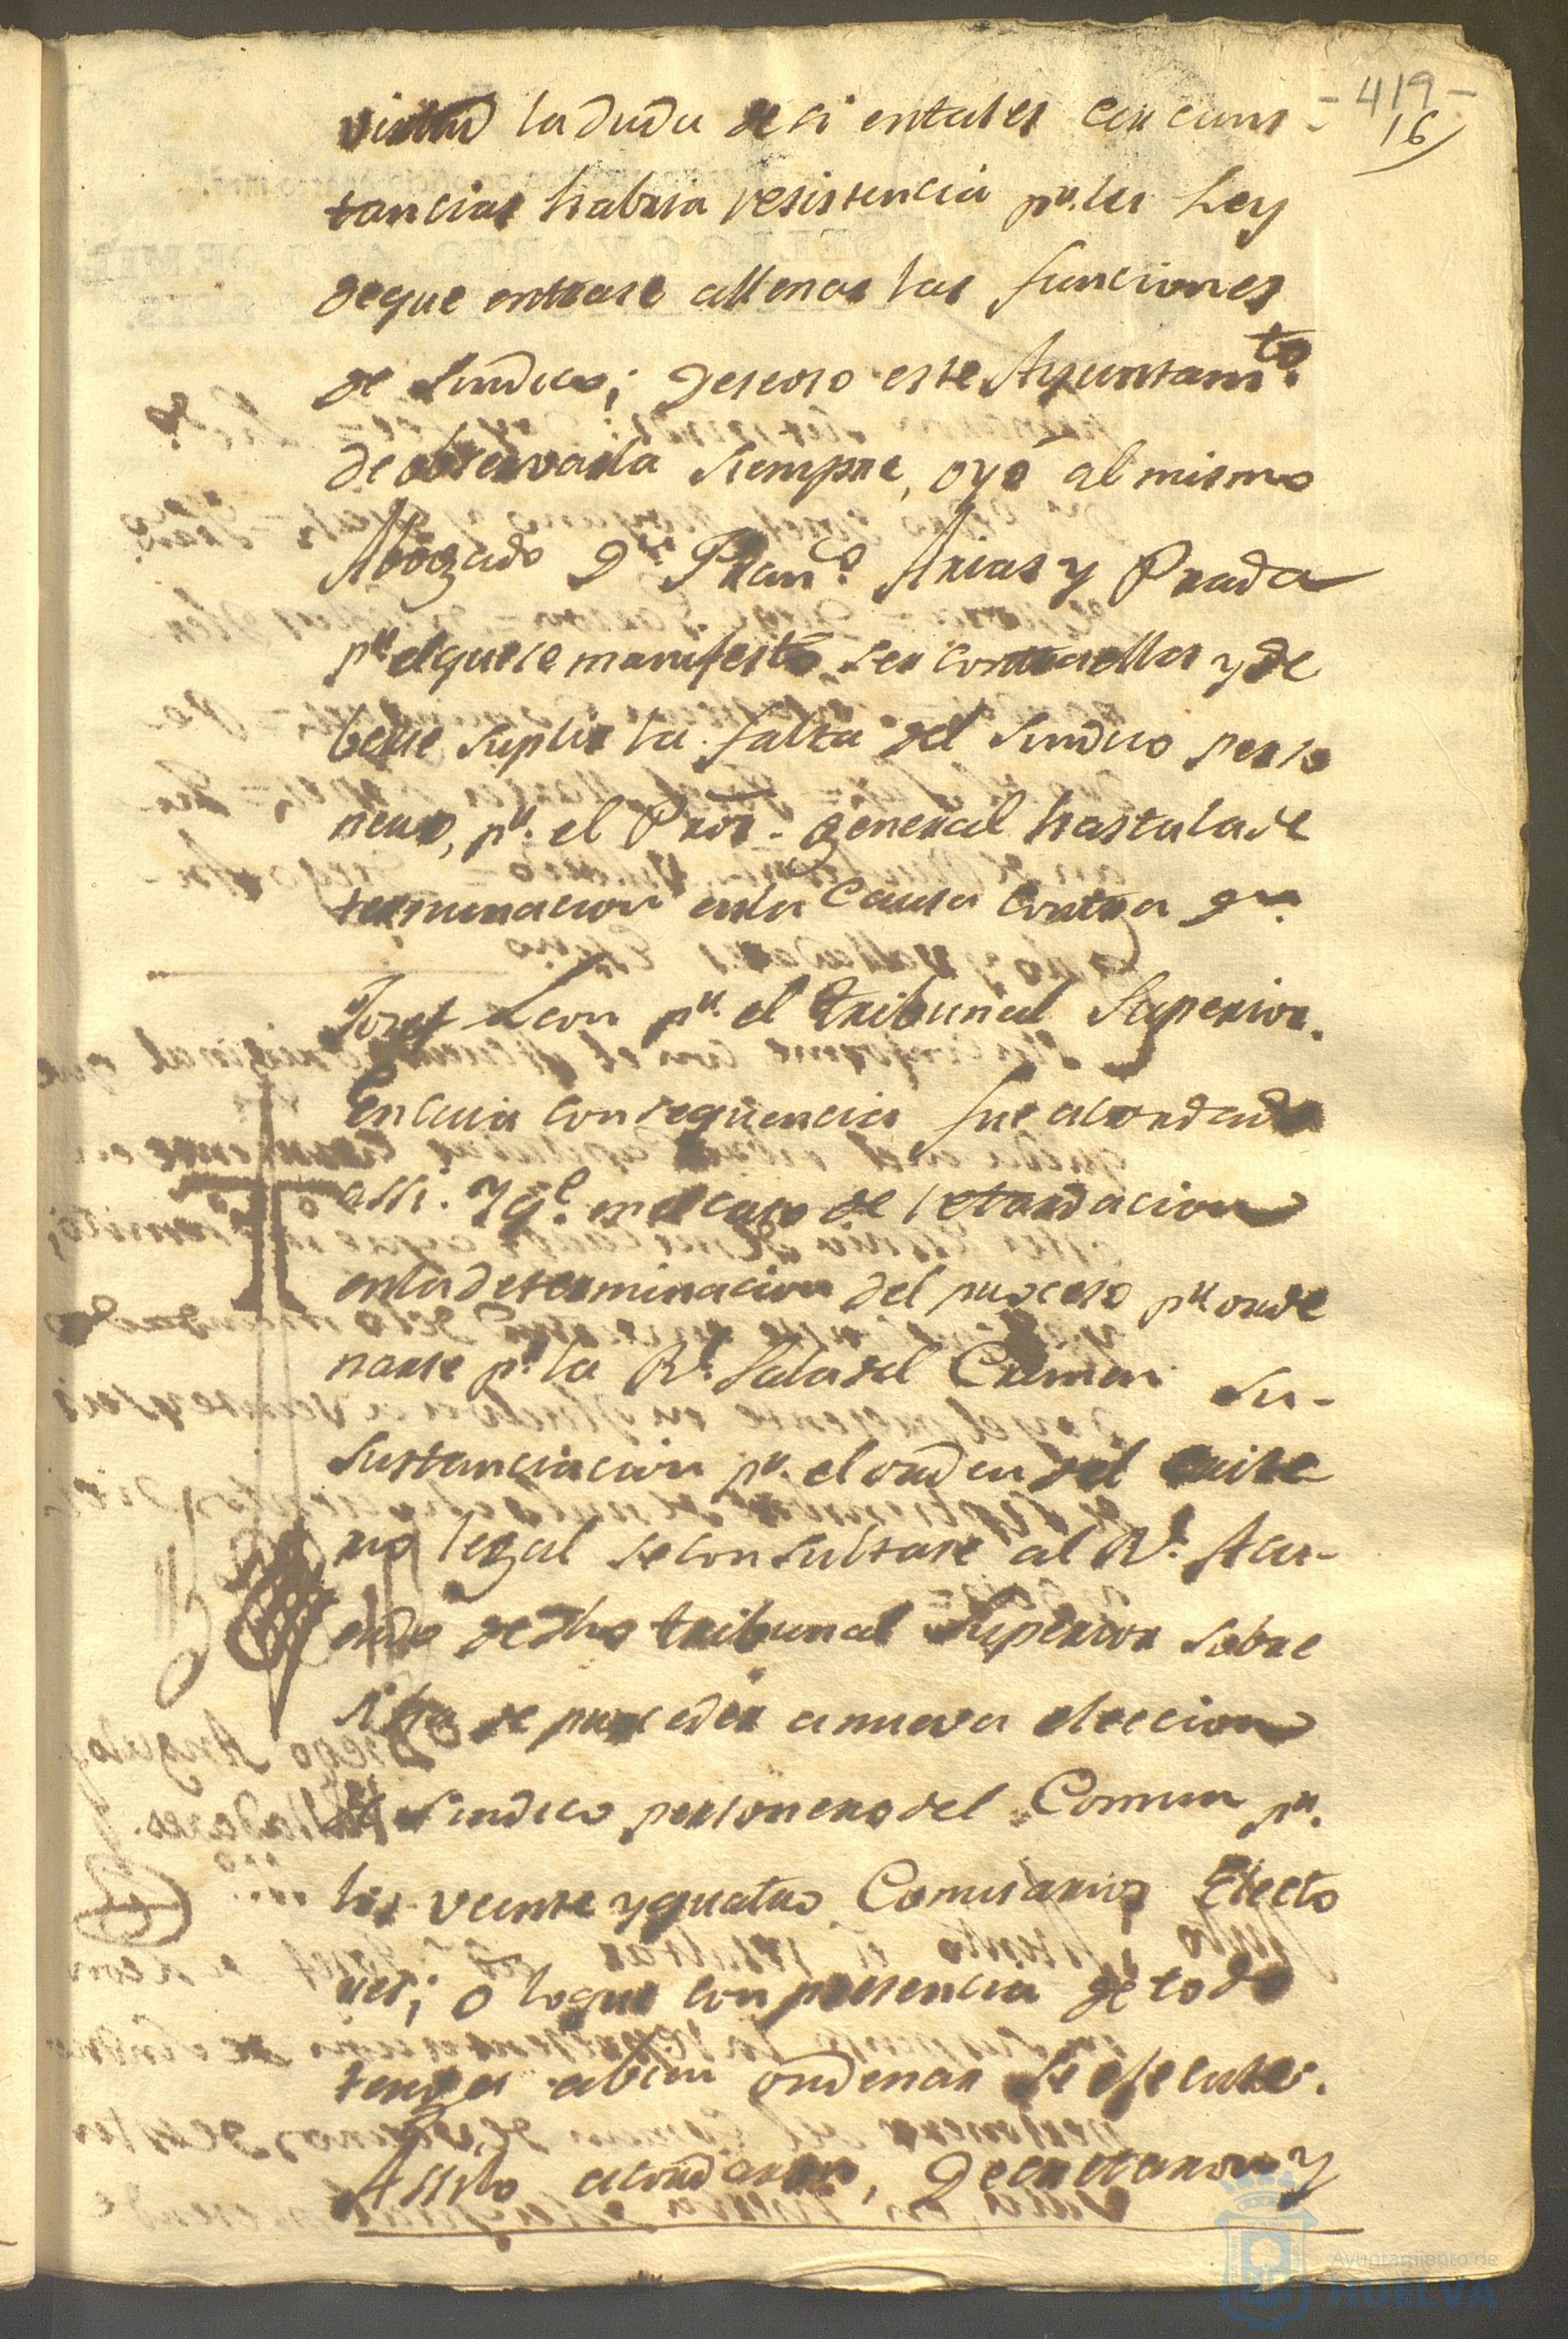 - 419 -
16
virtud la duda de si entales circuns-
tancias habria resistencia pr. la Ley
deque entrase allenar las funciones
de Sindico; deseoso este Ayuntamto.
de observarla siempre, oyó al mismo
Abogado Dn. Franco. Arias y Prada
pr. elquese manifestó ser contraellas y de
berse suplir la falta del Sindico perso
nero, pr. el Pror. general hasta la de
terminacion enla Causa contra Dn.
Josef Leon pr. el tribunal Superior.
En cuia consequencia fue acordado
assi. Y qe. en el caso de retardacion
enla determinacion del proceso pr. orde
narse pr. la Rl. Sala del Crimen su-
sustanciacion pr. el orden del
legal seconsultase al Rl. Acu-
erdo de dho tribunal Superior sobre
si ha de proceder a nueva eleccion
de Sindico personero del Comun pr.
los veinte yquatro Comisarios Electo
res; o loque con presencia de todo
tenga abien ordenar se execute.
Assilo acordaron, Decretaron y
Ayuntamiento de
HUELVA